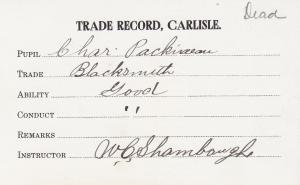 Dead
TRADE RECORD, CARLISLE.
PUPIL Char. Packineau
TRADE Blacksmith
ABILITY Good
CONDUCT "
REMARKS
INSTRUCTOR W.C. Shambough